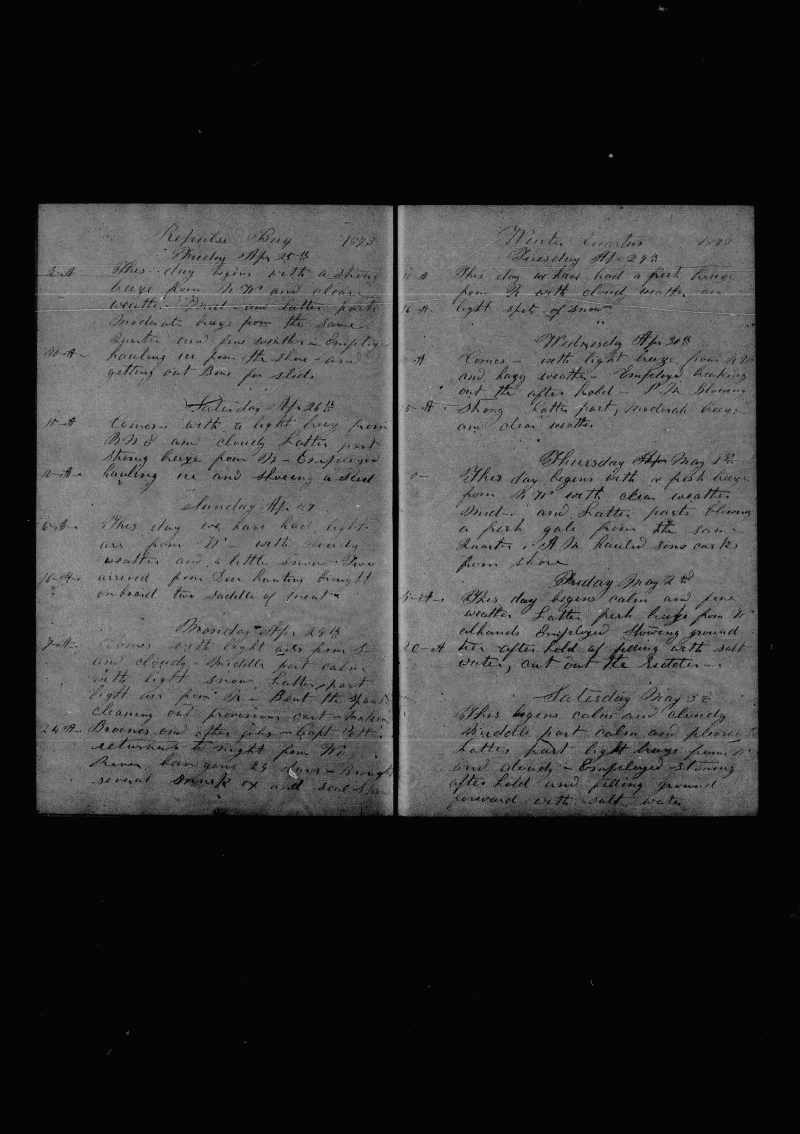 Repulse Bay 1873
Friday Apr 25th
2-A This day begins with a strong
breeze from N W and clear
weather Mid and Latter parts
Moderate breeze from the same
Quarter and fine weather - Employ
20-A- hauling ice from the shore - and
getting out Bone for sleds
Saturday Apr 26th
15-A Comes with a light breez from
and cloudy Latter part
Strong breeze from N - Employed
10-A- hauling ice and shoeing a sled
Sunday Apr 27
6-A- This day we have had light
airs from W - with cloudy
weather and a little snow
16-A- arrived from Deer hunting brought
onboard two saddles of meat
Monday Apr 28th
9-A- Comes with light airs from S
and cloudy - Middle part calm
with light snow Latter part
light air from N - Bent the
cleaning out provisions
24-A- and other jobs - Capt
returned to night from
River been gone 25 days - Brought
several Musk ox and
Winter Quarters 1873
Tuesday Ap 29th
11 A This day we have had a fresh breeze
from N with cloudy weather and
16 A- light spits of snow
Wednesday Apr 30th
A Comes - with light breeze from N W
and hazy weather - Employed breaking
out the after hold - P M Blowing
15-A- Strong Latter part, moderate breeze
and clear weather
Thursday Ap May 1st
0- This day begins with a fresh breeze
from N W with clear weather
Mid- and Latter parts blowing
a fresh gale from the same
Quarter. A M hauled some casks
from shore
Friday May 2nd
15-A- This day begins calm and fine
weather Latter fresh breeze from N
allhands Employed Stowing ground
20-A tier after hold of filling with salt
water, cut out the
Saturday May 3d
This begins calm and cloudy
Middle part calm and pleasant
Latter part light breeze from
and cloudy - Employed Stowing
after hold and filling ground
forward with salt water